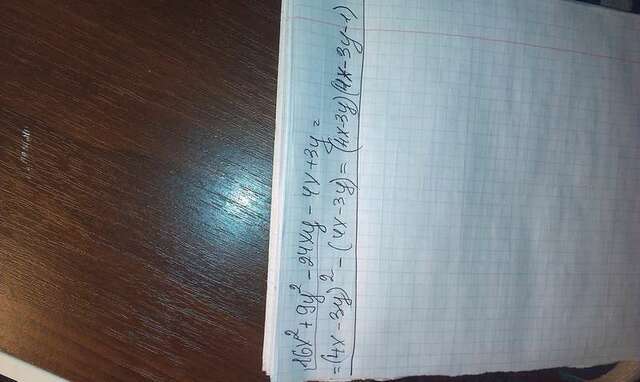 16x² + 9y² - 24xy - 4x + 3y =
= (4x - 3y)² - (4x - 3y) = (4x - 3y)(4x - 3y - 1)